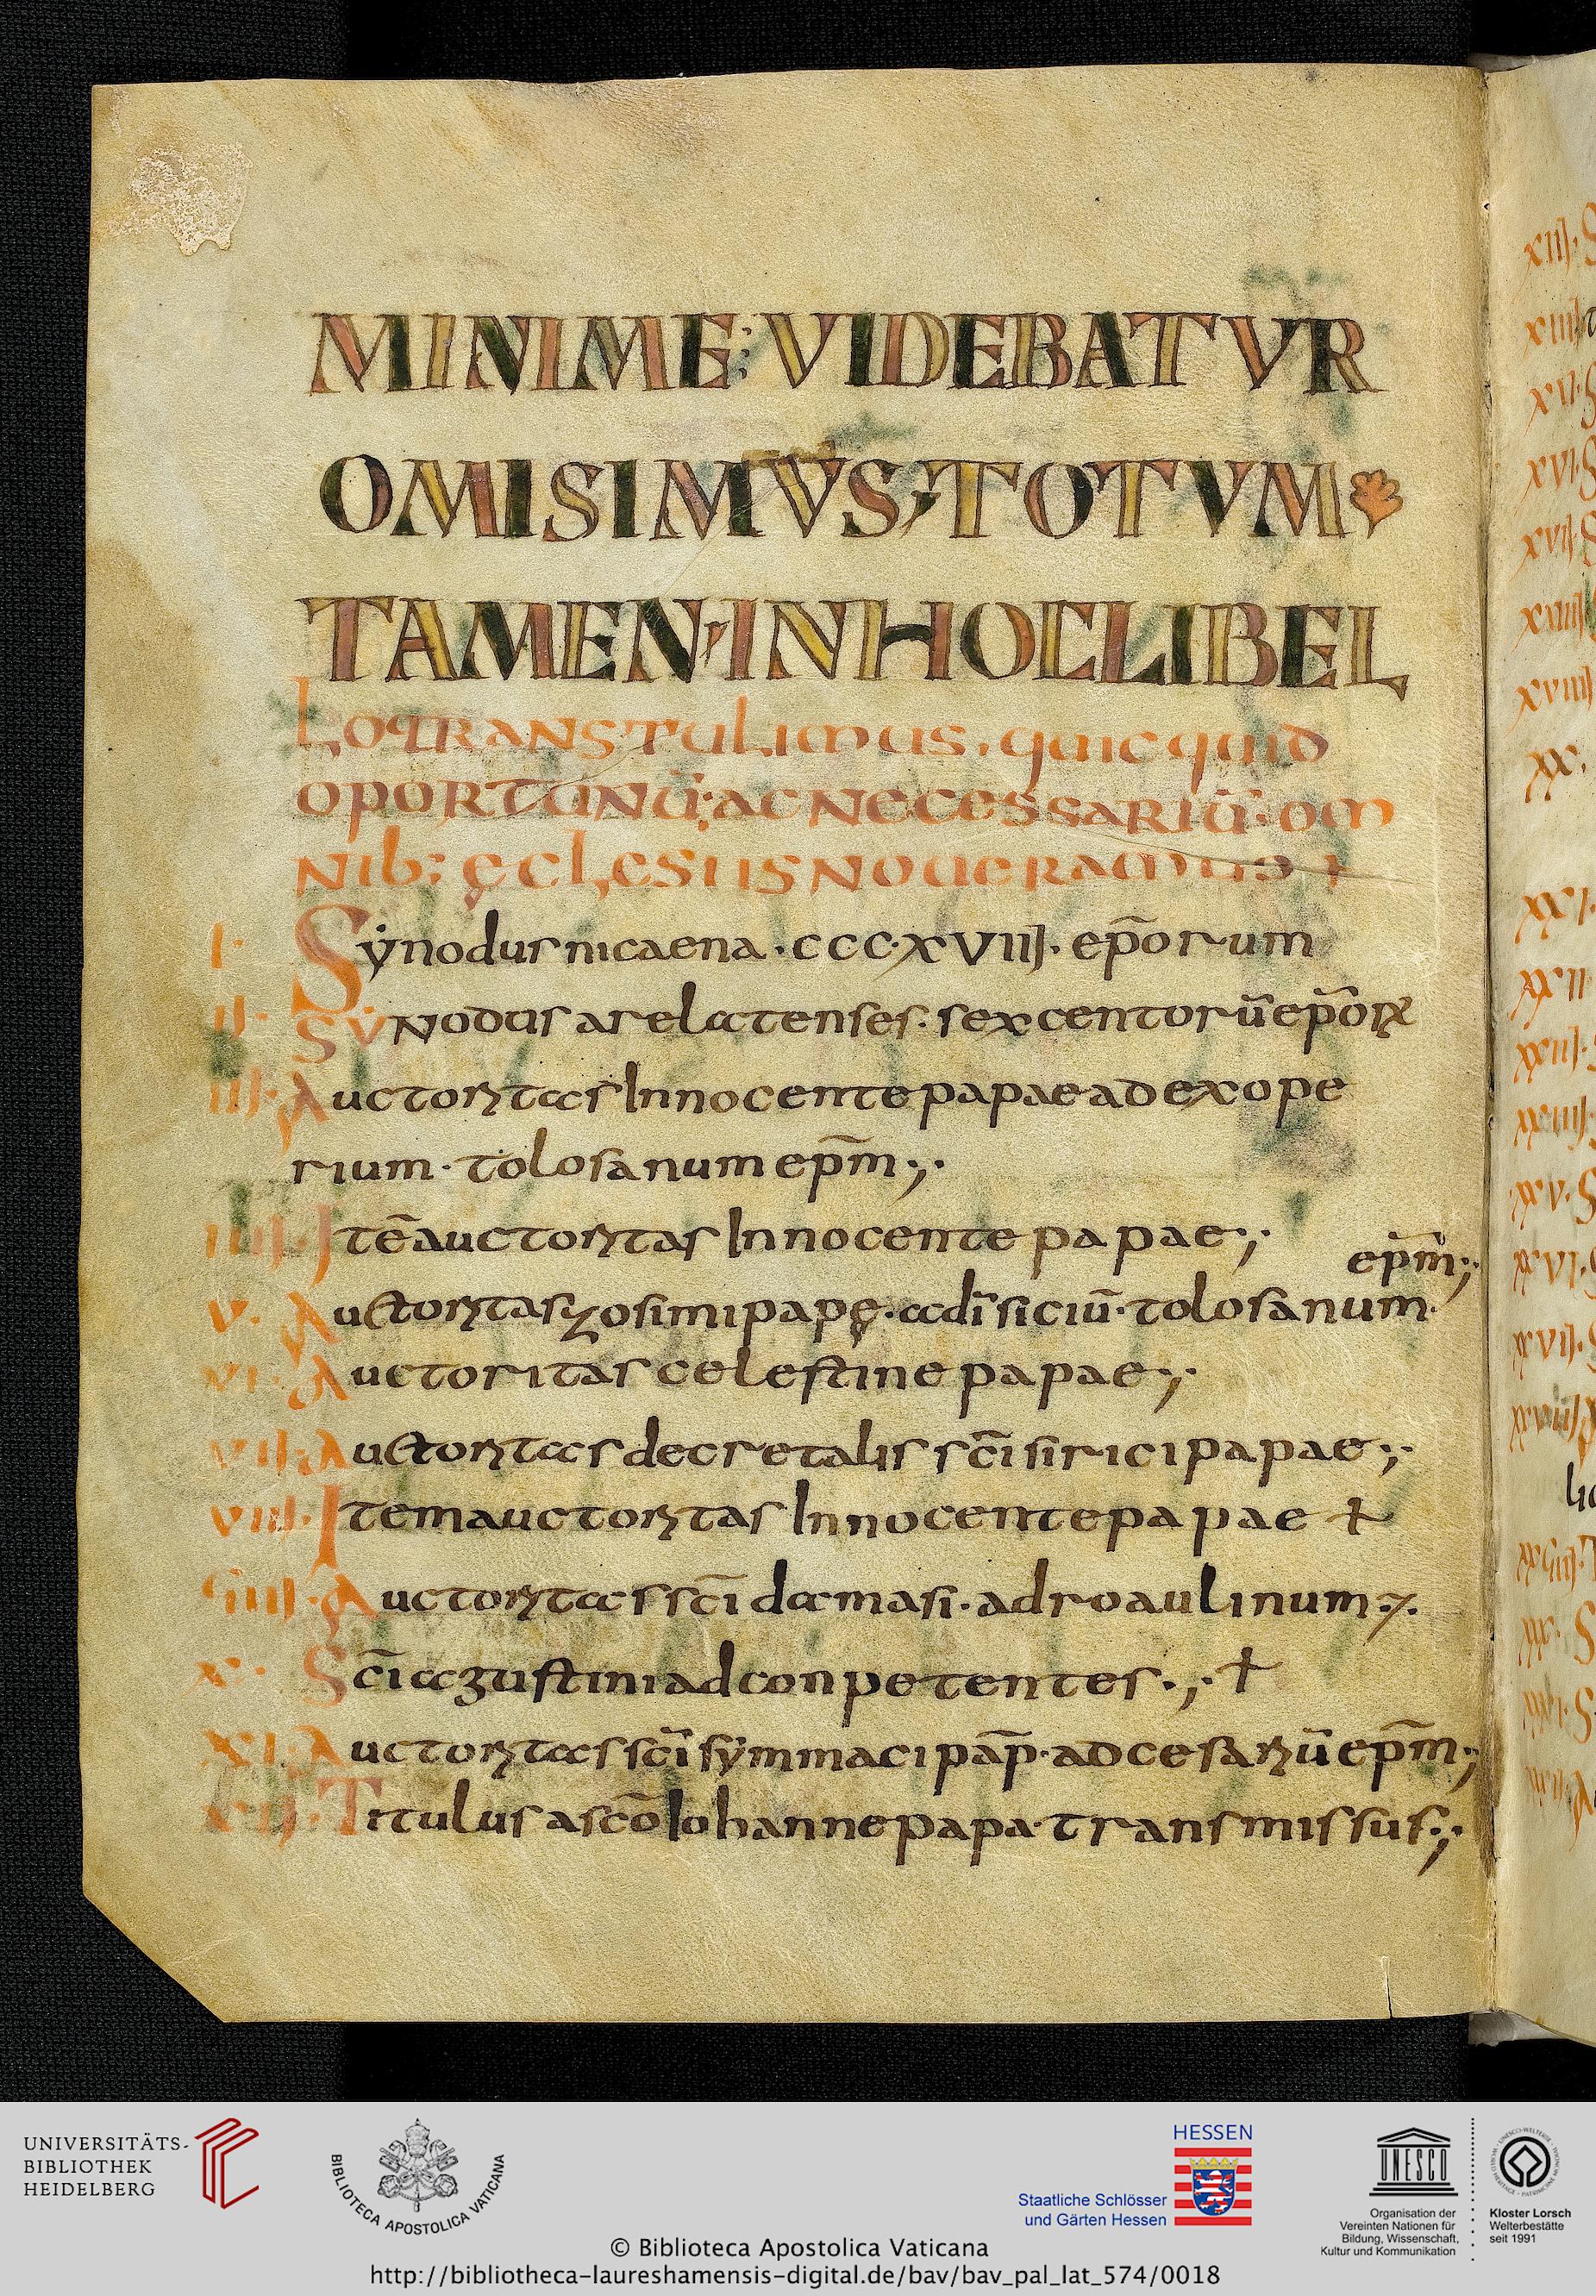 MINIME: VIDEBATVR
OMISIMVS; TOTVM
TAMEN; IN HOC LIBEL
LO TRANSTULIMUS. quicquid
OPORTUNŪ; AC NECESSARIŪ. OM
NIB; ęCLESIIS NOUERAMUS
I. Sẏnodus nicaena. ccc.xviij. ep̄orum
II. Sẏnodus arelatenses. sexcentorū ep̄orꝝ
III. Auctoritas Innocente papae ad exope
rium. tolosanum ep̄m;.
IIII. Itē auctoritas Innocente papae;.
ep̄m;.
V. Auctoritas zosimi papę. ad īsiciū. tolosanum.
VI. Auctoritas celestine papae;.
VII. Auctoritas decretalis sc̄i sirici papae;.
VIII. Item auctoritas Innocente papae
VIIII. Auctoritas sc̄i damasi. ad roaulinum
X. Sc̄i agustini ad conpetentes.;.
XI. Auctoritas sc̄i sẏmmaci pāp. ad cesariū ep̄m;
XII. Titulus a sc̄o Iohanne papa. transmissus;.
xiij. S
xiiij
xv. S
xvi. S
xvij. S
xviij
xviiij
xx.
xxi.
xxii
xxiij.
xxiiij.
xxv. S
xxvi.
xxvij.
UNIVERSITÄTS-
BIBLIOTHEK
HEIDELBERG
BIBLIOTECA APOSTOLICA VATICANA
HESSEN
Staatliche Schlösser
und Gärten Hessen
UNESCO
Organisation der
Vereinten Nationen für
Bildung, Wissenschaft,
Kultur und Kommunikation
Kloster Lorsch
Welterbestätte
seit 1991
© Biblioteca Apostolica Vaticana
http://bibliotheca-laureshamensis-digital.de/bav/bav_pal_lat_574/0018